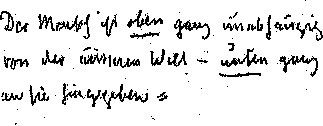 Der Mensch ist oben ganz unabhängig
von der äußeren Welt – unten ganz
an sie hingegeben